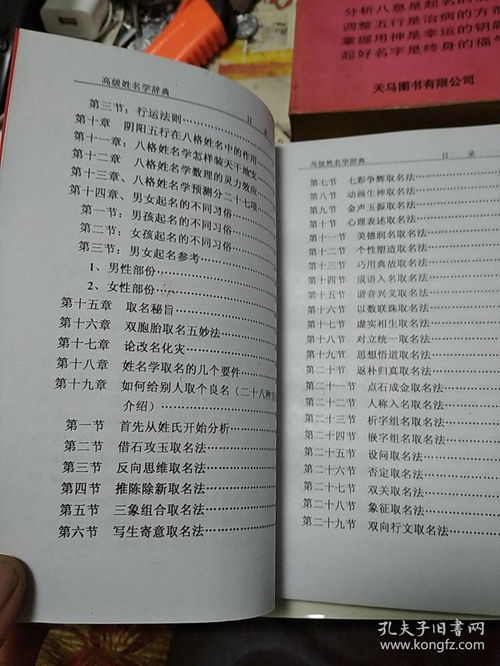 分析八息是起名的
调整五行是治病的方
掌握用神是幸运的钥
起好名字是终身的福
天马图书有限公司
高级姓名学辞典
目 录
第三节：行运法则
第十章 阴阳五行在八格姓名中的作用
第十一章：八格姓名学怎样装天干地支
第十二章 八格姓名学数理的灵力效应
第十三章、八格姓名学预测分二十七项
第十四章、男女起名的不同习俗
第一节：男孩起名的不同习俗
第二节：女孩起名的不同习俗
第三节：男女起名参考
1、男性部份
2、女性部份
第十五章 取名秘旨
第十六章 双胞胎取名五妙法
第十七章 论改名化灾
第十八章 姓名学取名的几个要件
第十九章 如何给别人取个良名（二十八种
介绍）
第一节 首先从姓氏开始分析
第二节 借石攻玉取名法
第三节 反向思维取名法
第四节 推陈除新取名法
第五节 三象组合取名法
第六节 写生寄意取名法
高级姓名学辞典
目 录
第七节 七彩争辉取名法
第八节 动画生神取名法
第九节 金声玉振取名法
第十节 心理表述取名法
第十一节 美德润名取名法
第十二节 个性塑造取名法
第十三节 巧用典故取名法
第十四节 成语入名取名法
第十五节 谐音兴义取名法
第十六节 以数联珠取名法
第十七节 虚实相生取名法
第十八节 对立统一取名法
第十九节 思想悟道取名法
第二十节 返朴归真取名法
第二十一节 点石成金取名法
第二十二节 人称入名取名法
第二十三节 析字组名取名法
第二十四节 嵌字组名取名法
第二十五节 设问取名法
第二十六节 否定取名法
第二十七节 双关取名法
第二十八节 象征取名法
第二十九节 双向行文取名法
孔夫子旧书网
www.kongfz.com